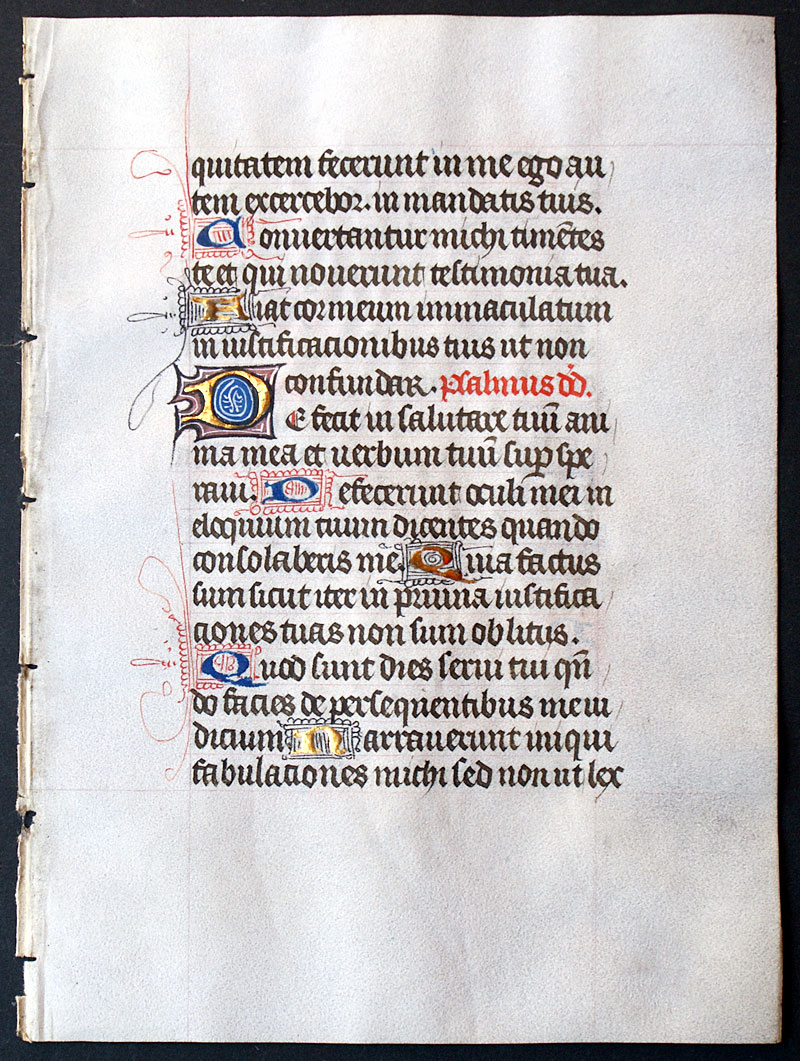 quitatem fecerunt in me ego au
tem excercebor. in mandatis tuis.
Conuertantur michi timētes
te et qui nouerunt testimonia tua.
Fiat cor meum immaculatum
in iustificacionibus tuis ut non
confundar. psalmus dd̄.
DE fecit in salutare tuū ani
ma mea et uerbum tuū suꝑ spe
raui. Defecerunt oculi mei in
eloquium tuum dicentes quando
consolaberis me. Quia factus
sum sicut iter in pruina iustifica
ciones tuas non sum oblitus.
Quod sunt dies serui tui qn̄
do facies de persequentibus me iu
dicium Narrauerunt iniqui
fabulaciones michi sed non ut lex